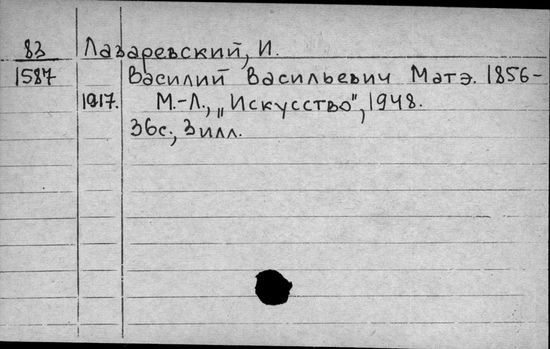 83 Лазаревский, И.
1587 Василий Васильевич Матэ. 1856-
1917. М.-Л., „Искусство", 1948.
36с., 3 илл.